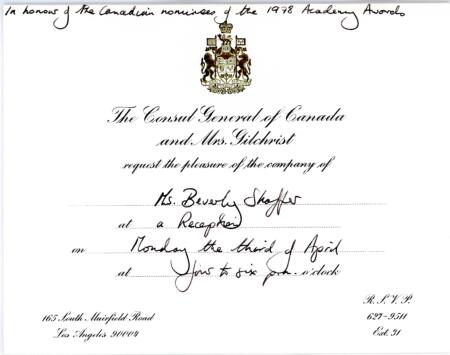 In honour of the Canadian nominees of the 1978 Academy Awards
The Consul General of Canada
and Mrs. Gilchrist
request the pleasure of the company of
Ms. Beverly Shaffer
at a Reception
on Monday the third of April
at four to six p.m. o'clock
R.S.V.P.
165 South Muirfield Road 627-9511
Los Angeles 90004 Ext. 31